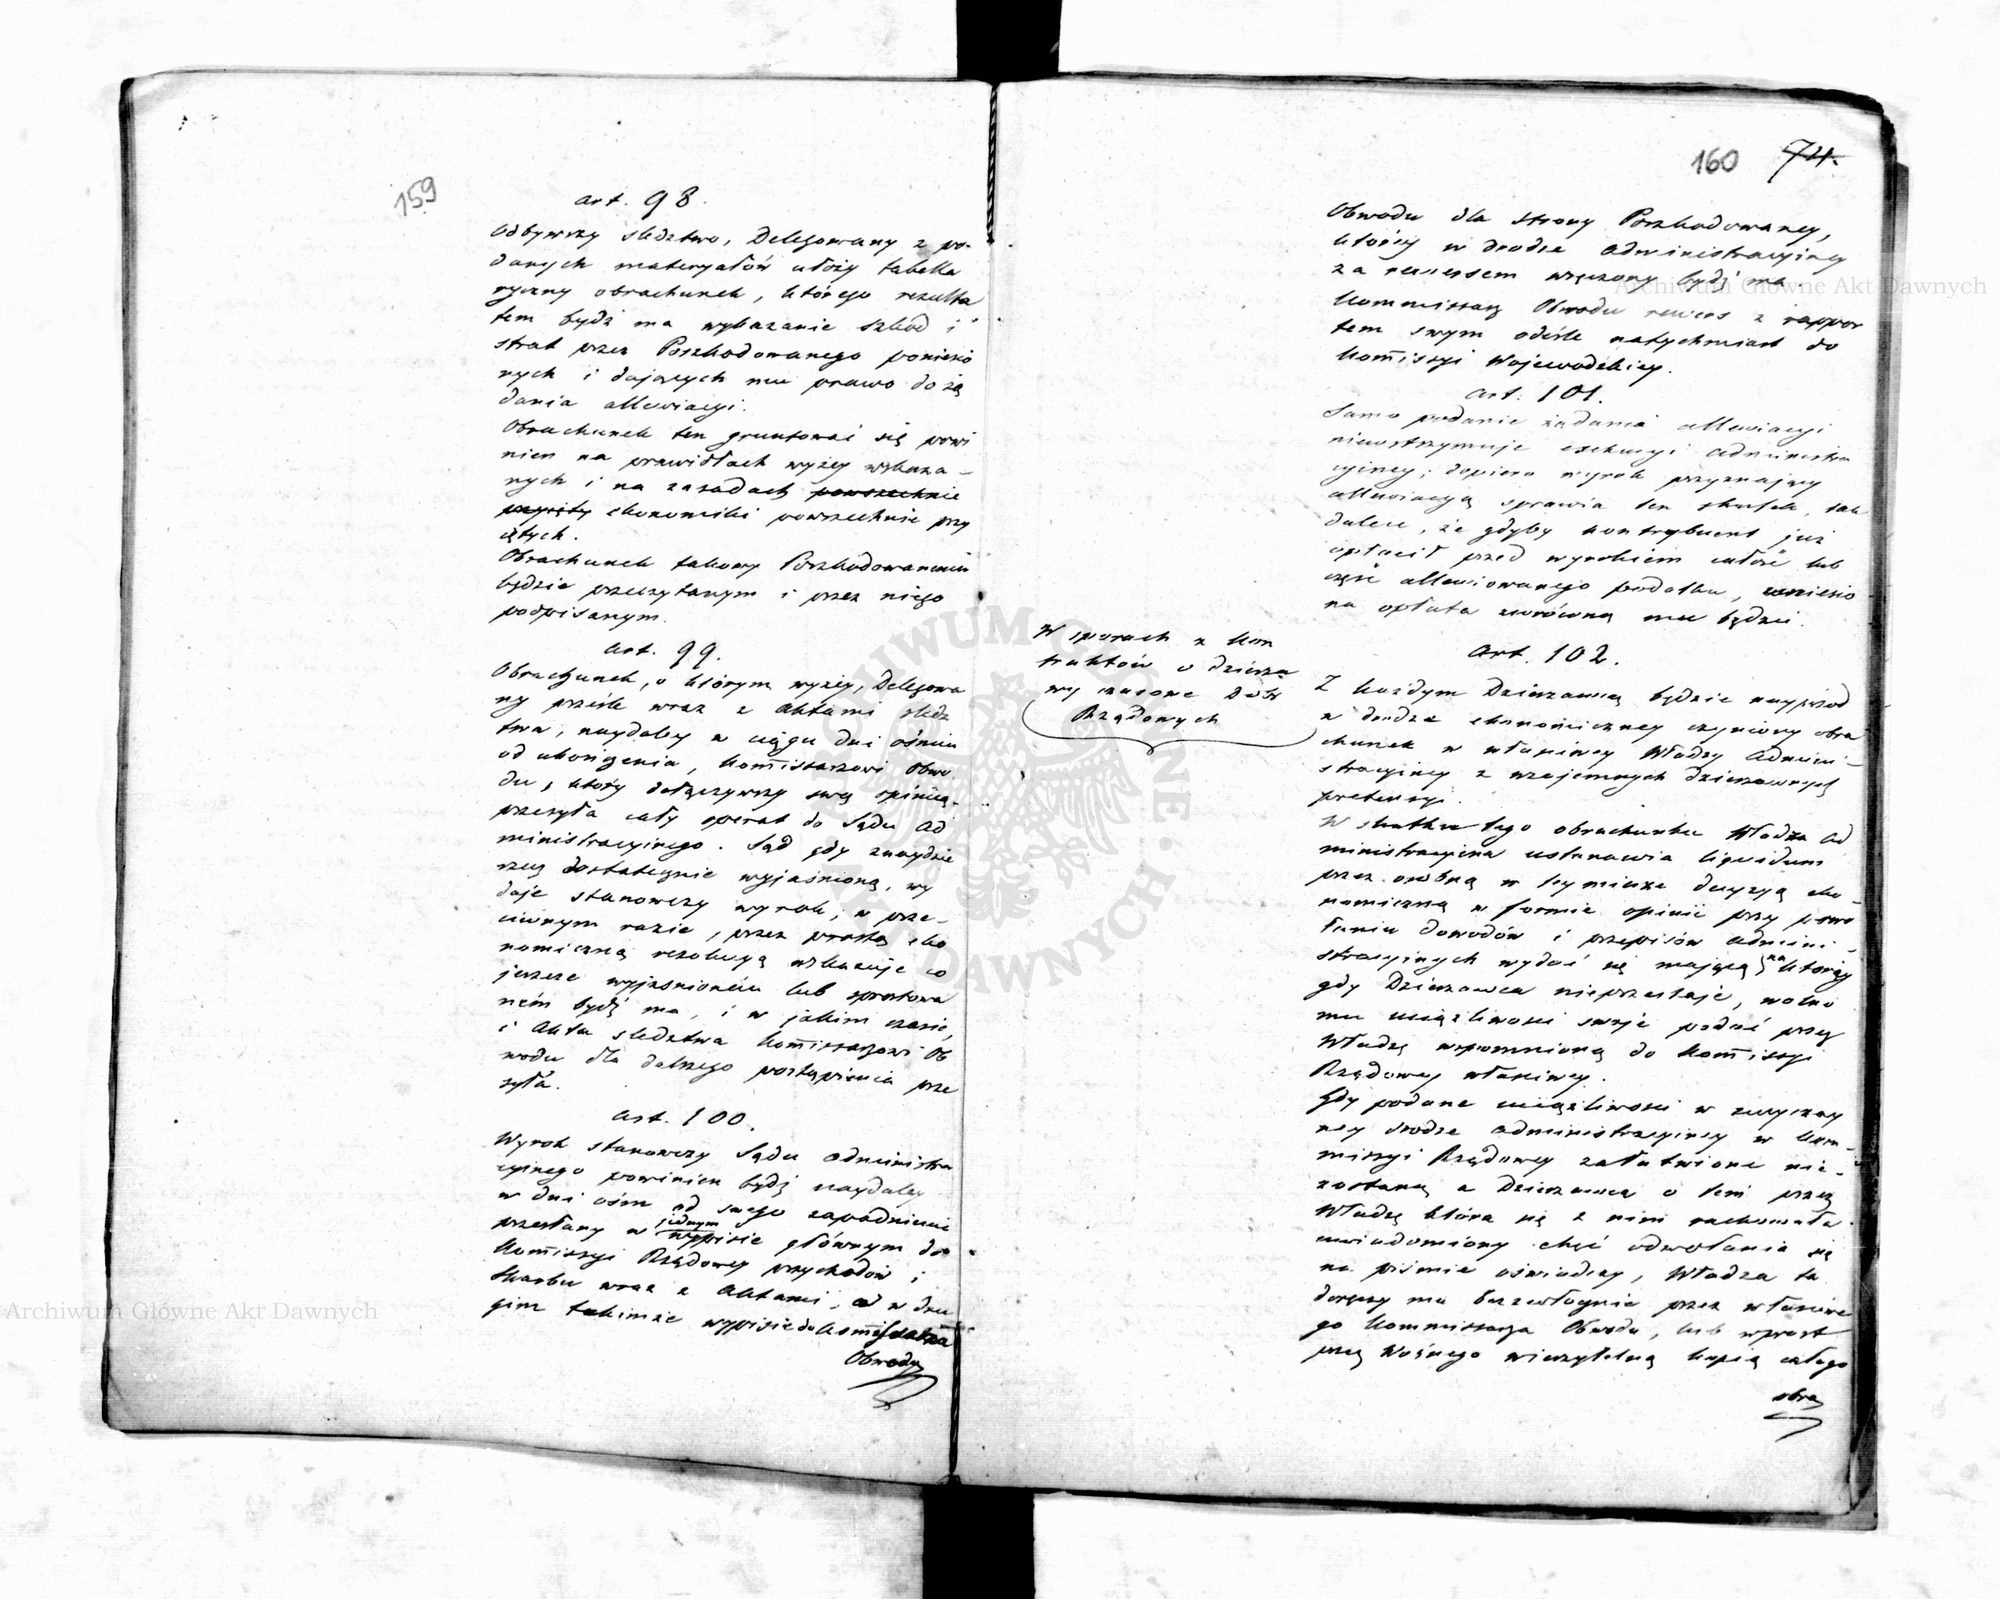 159
art. 98.
Odbywszy śledztwo, Delegowany z po-
danych materyałów ułoży tabella
ryczny obrachunek, którego rezulta
tem bydź ma wykazanie szkod i
strat przez Poszkodowanego poniesio
nych i dających mu prawo do żą
dania allewiacyi.
Obrachunek ten gruntować się powi
nien na prawidłach wyżey wskaza-
nych i na zasadach powszechnie
przyięty ekonomiki powszechnie przy
iętych.
Obrachunek takowy Poszkodowanemu
będzie przeczytanym i przez niego
podpisanym.
art. 99.
Obrachunek, o którym wyżey, Delegowa
ny prześle wraz z Aktami śledz
twa, naydaley w ciągu dni ośmiu
od ukończenia, Kommissarzowi Obwo
du, który dołączywszy swą opinią
przesyła cały operat do Sądu Ad
ministracyinego. Sąd gdy znaydzie
rzecz dostatecznie wyjaśnioną, wy
daje stanowczy wyrok; w prze-
ciwnym razie, przez prostą eko
nomiczną rezolucyą wskazuje co
jeszcze wyjaśnioném lub sprostowa
ném bydź ma, i w jakim czasie,
i Akta śledztwa Kommissarzowi Ob
wodu dla dalszego postąpienia prze
syła.
art. 100.
Wyrok stanowczy Sądu administra
cyinego powinien bydź naydaley
w dni ośm od swego zapadnienia
przesłany w jednym wypisie głównym do
Kommissyi Rządowey przychodów i
Skarbu wraz z Aktami, a w dru
gim takimże wypisie do Kommissarza
Obwodu
160 74.
Obwodu dla strony Poszkodowaney,
którey w drodze administracyiney
za rewersem wręczony bydź ma.
Kommissarz Obwodu rewers z rappor
tem swym odeśle natychmiast do
Kommissyi Wojewodzkiey.
art. 101.
Samo podanie żądania allewiacyi
niewstrzymuje exekucyi administra
cyiney; dopiero wyrok przyznający
allewiacyą sprawia ten skutek, tak
dalece, że gdyby kontrybuent już
opłacił przed wyrokiem całość lub
część allewiowanego podatku, wniesio
na opłata zwróconą mu będzie.
W sporach z kon
traktów o dzierża
wy czasowe Dóbr
Rządowych
art. 102.
Z każdym Dzierzawcą będzie nayprzód
w drodze ekonomiczney czyniony obra
chunek w właściwey Władzy Admini-
stracyiney z wzajemnych dzierzawnych
pretensyi.
W skutku tego obrachunku Władza ad
ministracyina ustanawia liquidum
przez osobną w tey mierze decyzyą eko-
nomiczną w formie opinii przy powo
łaniu dowodów i przepisów admini-
stracyinych wydać się mającą, na którey
gdy Dzierzawca nieprzestaje, wolno
mu uciążliwości swoje podać przez
Władzę wspomnioną do Kommissyi
Rządowey właściwey.
Gdy podane uciążliwości w zwyczay
ney drodze administracyiney w Kom-
missyi Rządowey załatwione nie-
zostaną a Dzierzawca o tem przez
Władzę która się z nim rachowała
uwiadomiony chęć odwołania się
na piśmie oświadczy, Władza ta
doręczy mu bezzwłocznie przez właściwe
go Kommissarza Obwodu, lub wprost
przez Woźnego wierzytelną kopią całego
obra